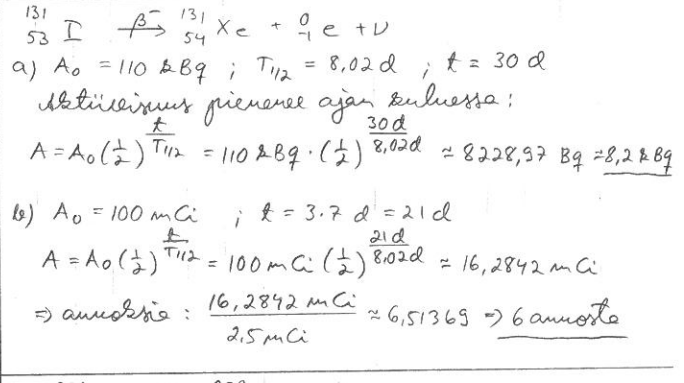 ¹³¹₅₃ I →^β⁻ ¹³¹₅₄ Xe + ⁰₋₁ e + ν
a) A₀ = 110 kBq ; T₁/₂ = 8,02 d ; t = 30 d
Aktiivisuus pienenee ajan kuluessa :
A = A₀(1/2)^(t/T₁/₂) = 110 kBq · (1/2)^(30 d/8,02d) ≈ 8228,97 Bq ≈ 8,2 kBq
b) A₀ = 100 mCi ; t = 3·7 d = 21 d
A = A₀(1/2)^(t/T₁/₂) = 100 mCi (1/2)^(21 d/8,02d) ≈ 16,2842 mCi
⇒ annoksia : 16,2842 mCi / 2,5 mCi ≈ 6,51369 ⇒ 6 annosta